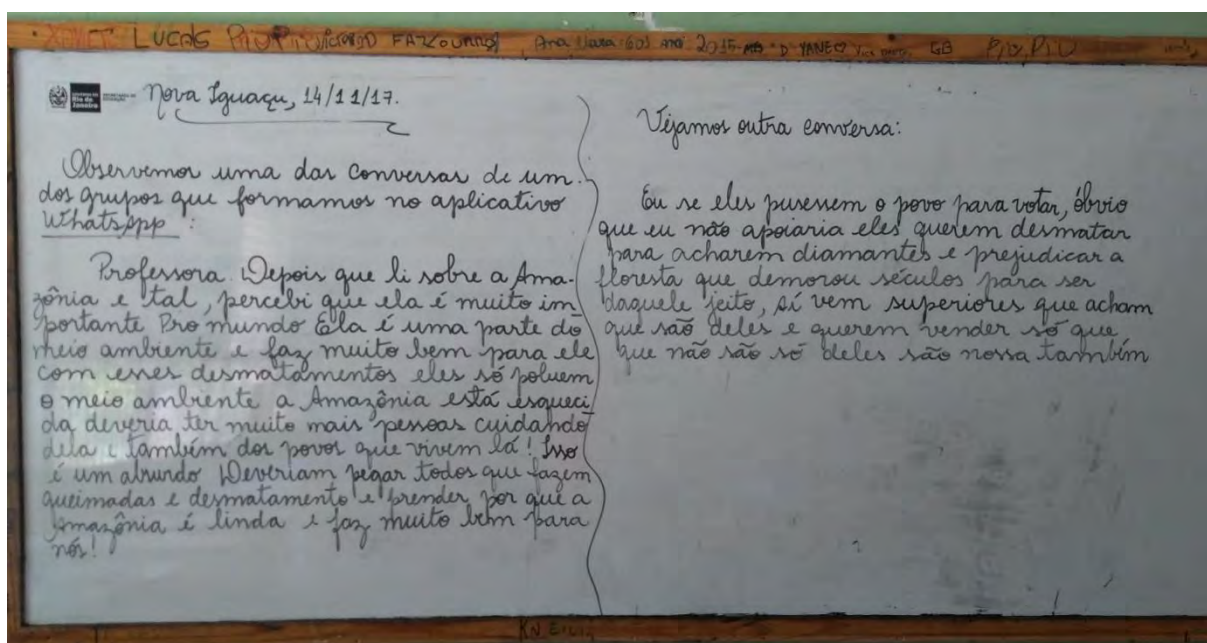 LUCAS PIU PIU FAZ Ana 601 2015 D YANEO GB PIU PIU
Rio de Janeiro
Nova Iguaçu, 14/11/17.
Observemos uma das conversas de um
dos grupos que formamos no aplicativo
WhatsApp :
Professora. Depois que li sobre a Ama-
zônia e tal, percebi que ela é muito im
portante Pro mundo Ela é uma parte do
meio ambiente e faz muito bem para ele
com esses desmatamentos eles só poluem
o meio ambiente a Amazônia está esqueci
da deveria ter muito mais pessoas cuidando
dela e também dos povos que vivem lá! Isso
é um absurdo Deveriam pegar todos que fazem
queimadas e desmatamento e prender por que a
Amazônia é linda e faz muito bem para
nós!
Vejamos outra conversa:
Eu se eles pusessem o povo para votar, óbvio
que eu não apoiaria eles querem desmatar
para acharem diamantes e prejudicar a
floresta que demorou séculos para ser
daquele jeito, aí vem superiores que acham
que são deles e querem vender só que
que não são só deles são nossa também